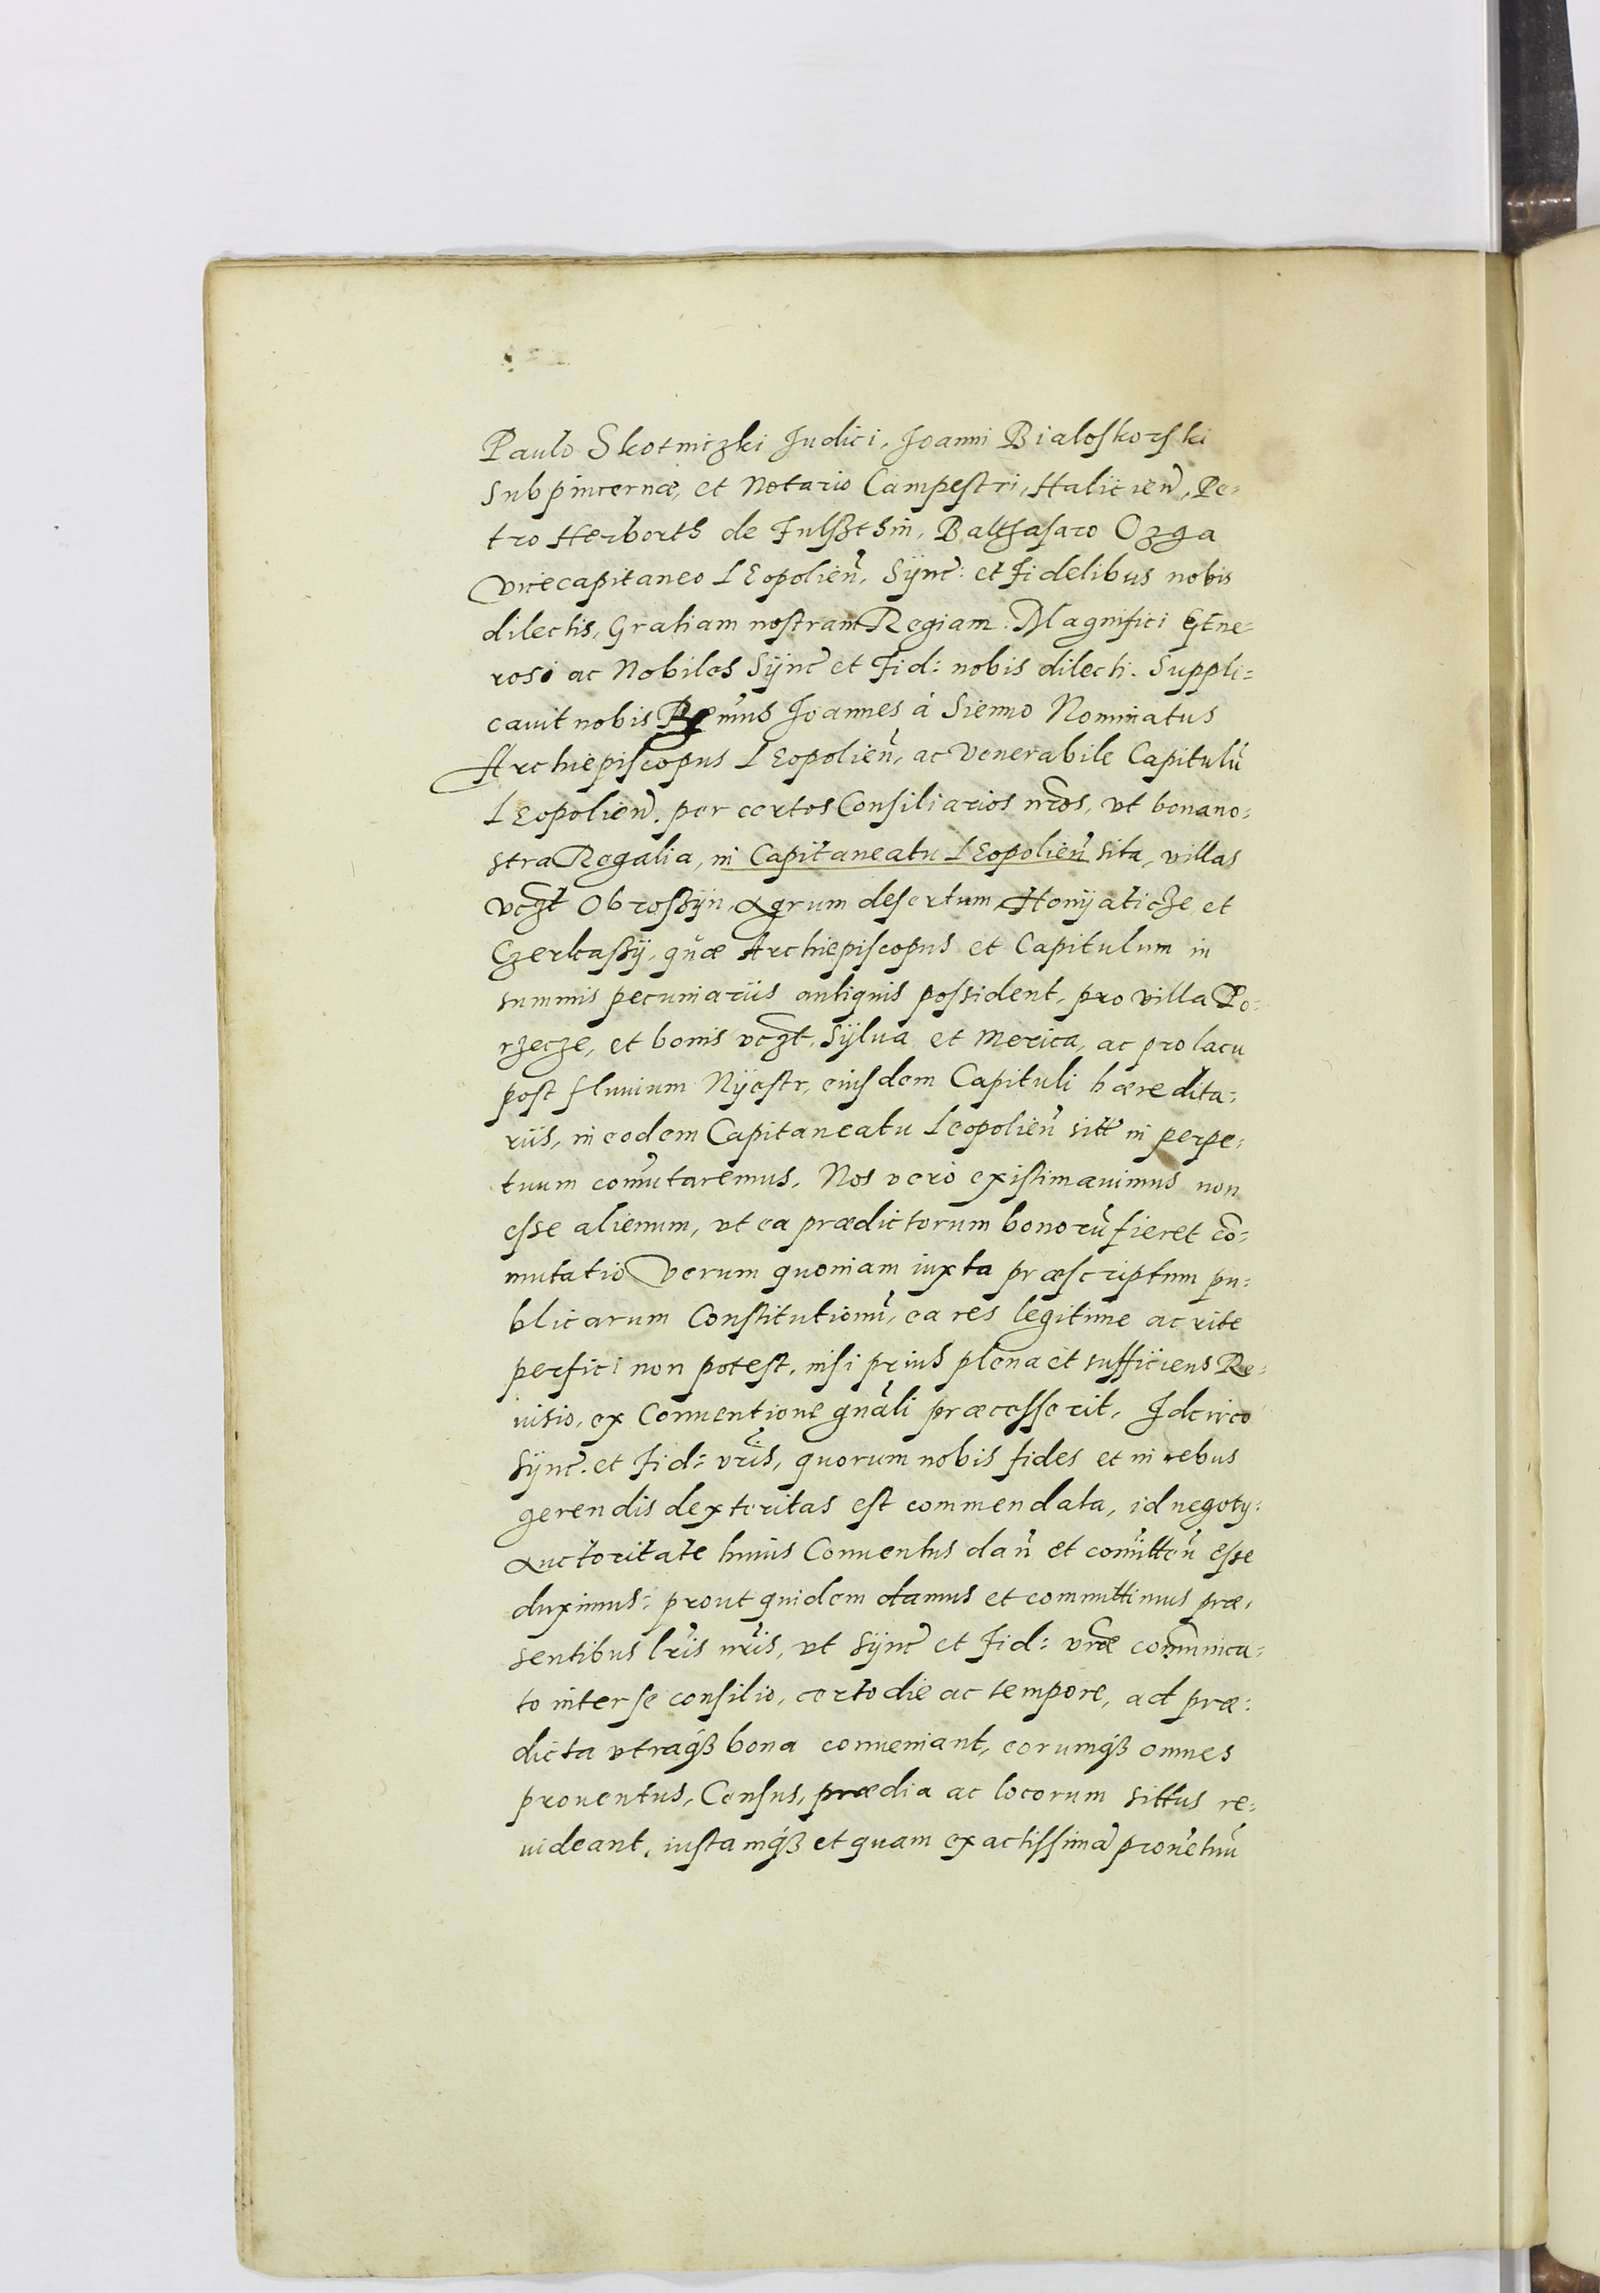 Paulo Skotniczki Judici, Joanni Bialoskorski
Subpincernæ, et Notario Campestri, Haliciẽn, Pe-
tro Herborth de Fulszthin, Balthasaro Ozga
Vicecapitaneo LEopolieñ, Sÿnc: et Fidelibus nobis
dilectis, Gratiam nostram Regiam. Magnifici GEne-
rosi ac Nobiles Sÿnc et Fid: nobis dilecti. Suppli-
cauit nobis Rmus Joannes à Sienno Nominatus
Archiepiscopus LEopolieñ, ac Venerabile Capitulũ
LEopolieñ. per certos Consiliarios nr̃os, vt bona no-
stra Regalia, in Capitaneatu LEopolieñ sita, villas
vczt Obrossÿn, agrum desertum Honÿaticze, et
Czerkassÿ, quæ Archiepiscopus et Capitulum in
summis pecuniariis antiquis possident, pro villa Po-
rzecze, et bonis vczt, Sÿlua et Merica, ac pro lacu
post fluuium Nÿestr, eiusdem Capituli hæredita-
riis, in eodem Capitaneatu Leopolieñ sitt in perpe-
tuum com̃utaremus. Nos verò existimauimus non
esse alienum, vt ea prædictorum bonorũ fieret cõ-
mutatio Verum quoniam iuxta præscriptum pu-
blicarum Constitutionũ, ea res legitime ac rite
perfici non potest, nisi prius plena et sufficiens Re-
uisio, ex Conuentione gñali præcesserit, Idcirco
Sÿnc. et Fid: vr̃is, quorum nobis fides et in rebus
gerendis dexteritas est commendata, id negotÿ
auctoritate huius Conuentus dañ et com̃itteñ esse
duximus: prout quidem damus et committimus præ-
sentibus lr̃is nr̃is, vt Sÿnc et Fid: vræ com̃unica-
to inter se consilio, certo die ac tempore, ad præ-
dicta vtraqз bona conueniant, eorumqз omnes
prouentus, Census, prædia ac locorum sittus re-
uideant, iustamqз et quam exactissimã prouẽtuũ